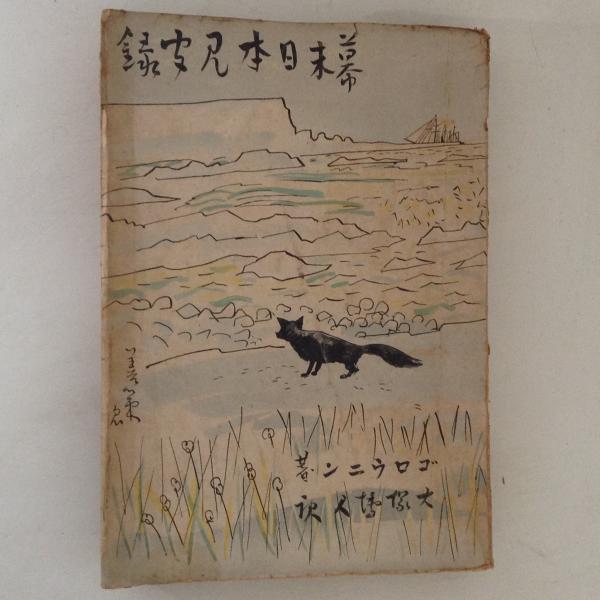 幕末日本見聞録
ゴロウニン著
大塚博人訳